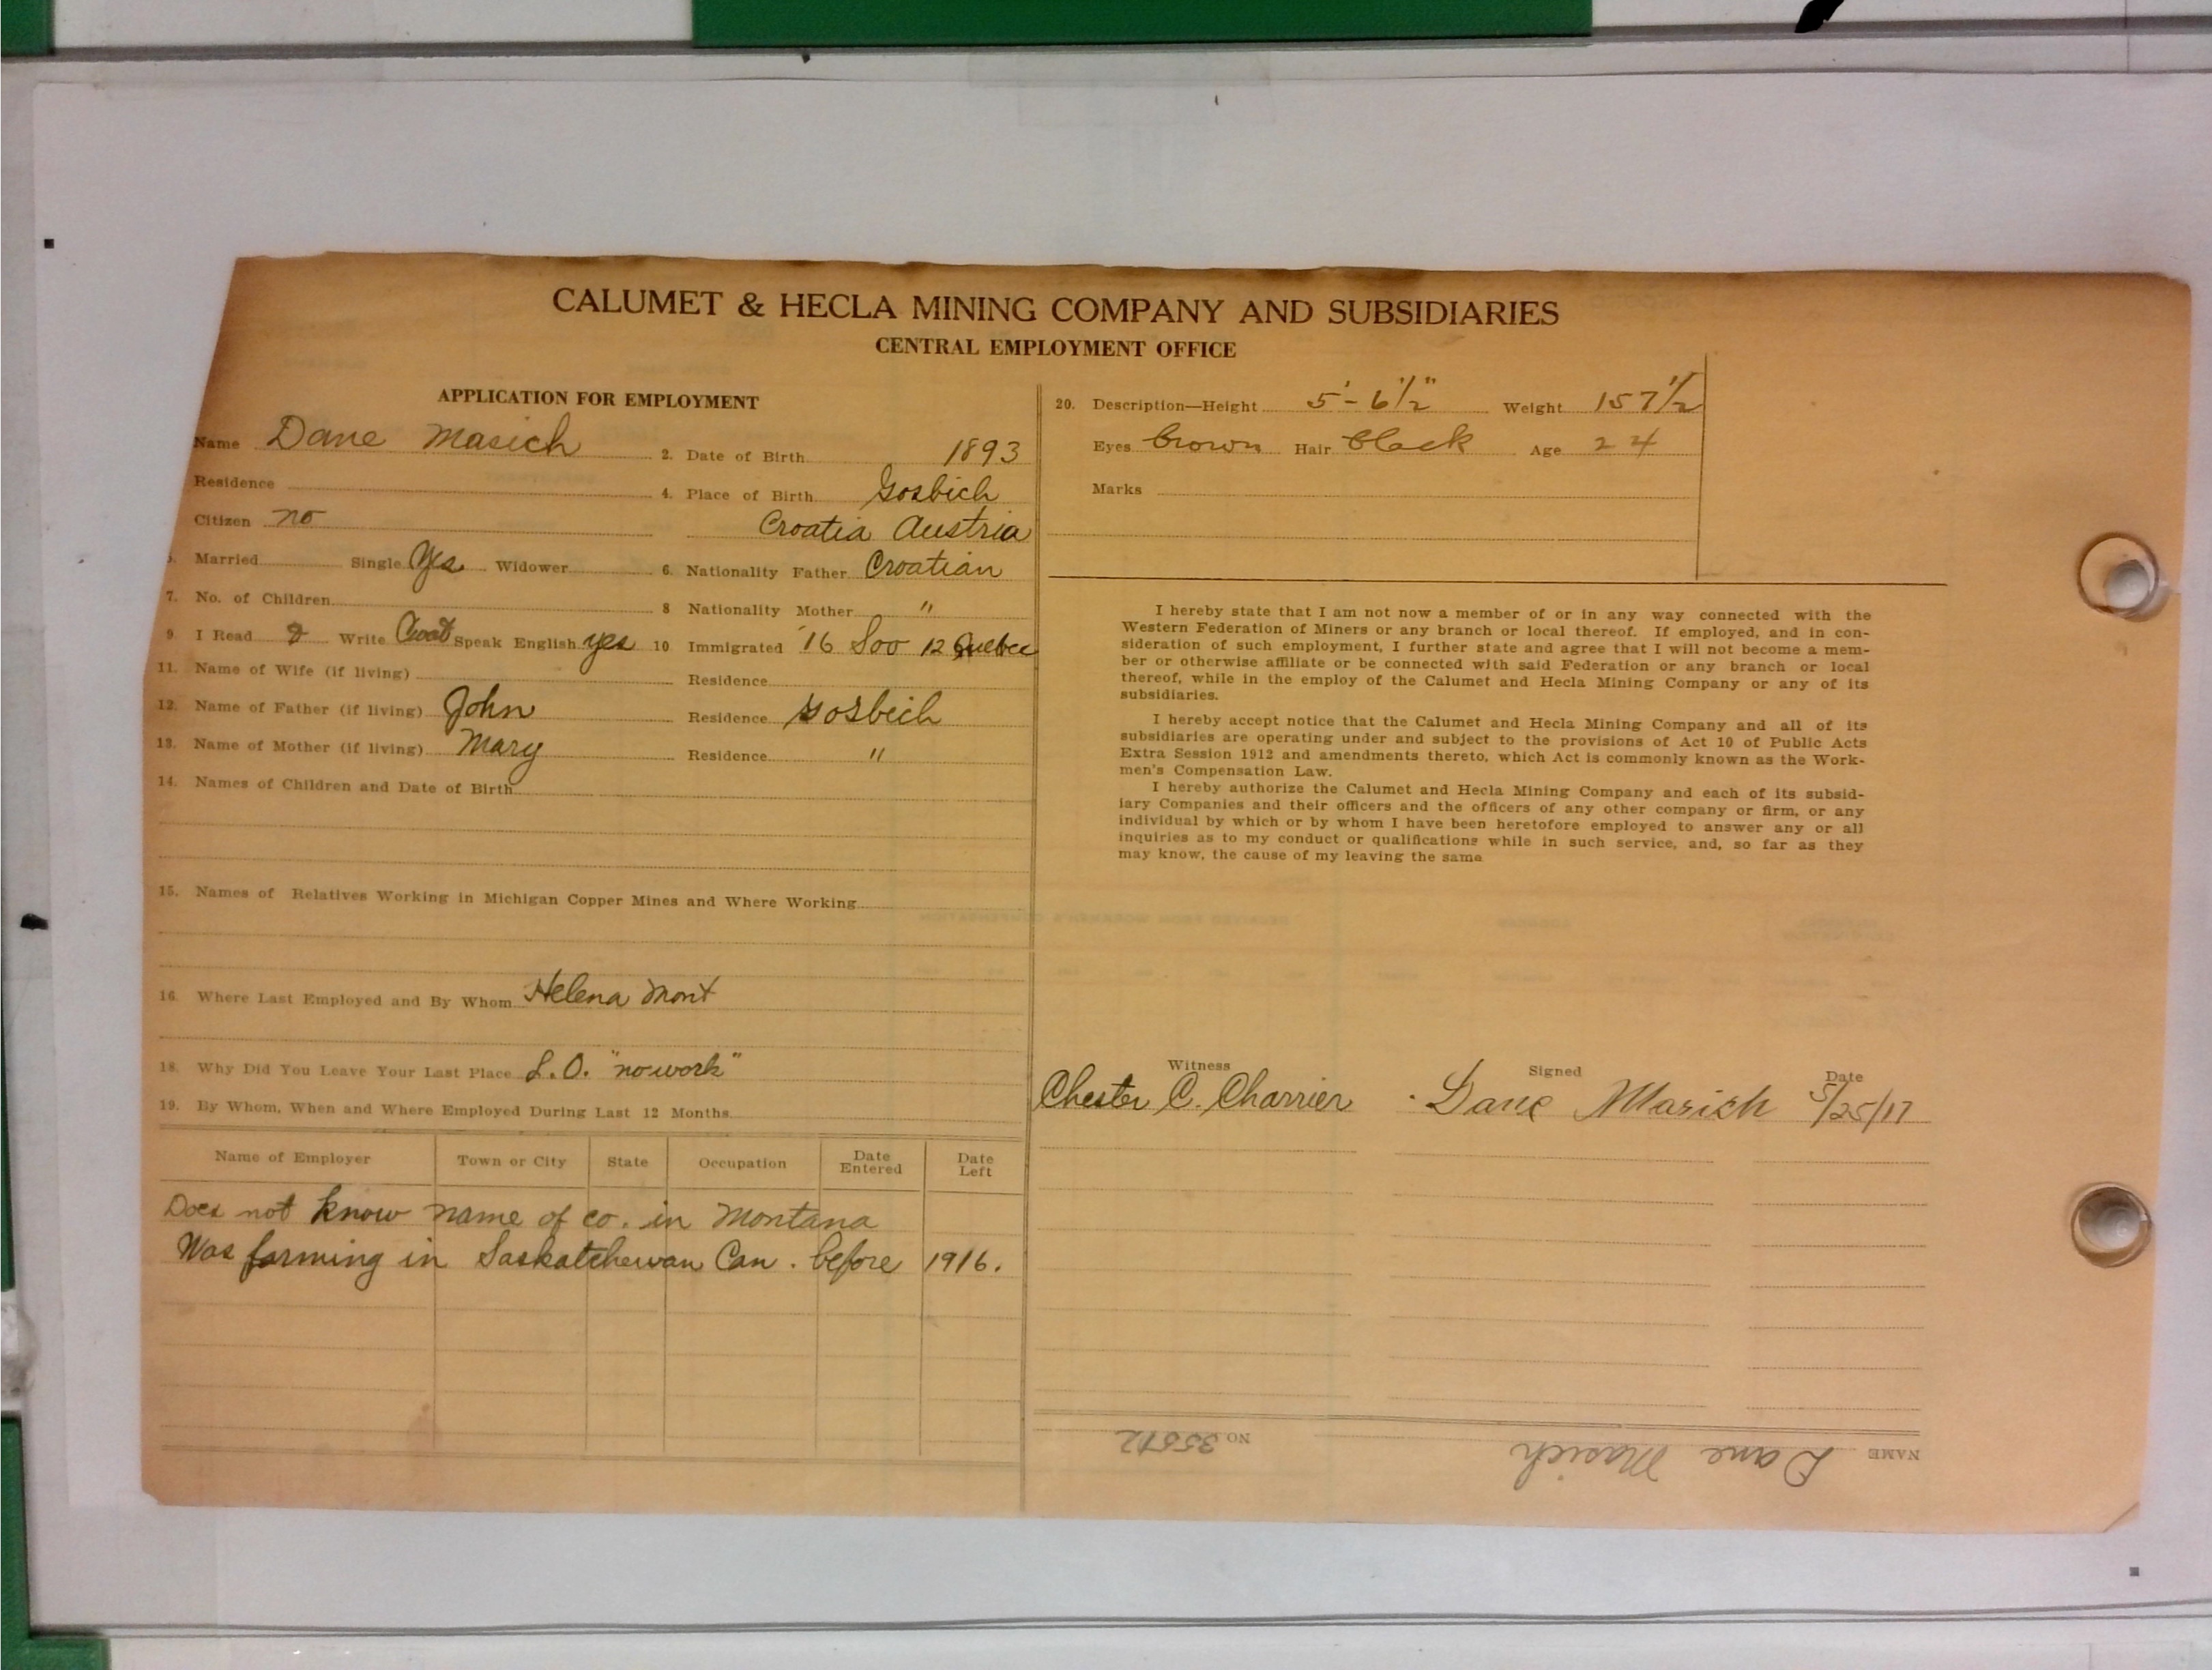 CALUMET & HECLA MINING COMPANY AND SUBSIDIARIES
CENTRAL EMPLOYMENT OFFICE
APPLICATION FOR EMPLOYMENT
Name Dane Masich
2. Date of Birth 1893
Residence
4. Place of Birth Gosbich
Citizen no
Croatia Austria
5. Married Single Yes Widower
6. Nationality Father Croatian
7. No. of Children
8 Nationality Mother "
9. I Read & Write Croat Speak English yes
10 Immigrated '16 Soo 12 Quebec
11. Name of Wife (if living) Residence
12. Name of Father (if living) John Residence Gosbich
13. Name of Mother (if living) Mary Residence "
14. Names of Children and Date of Birth
15. Names of Relatives Working in Michigan Copper Mines and Where Working
16. Where Last Employed and By Whom Helena Mont
18. Why Did You Leave Your Last Place L.O. "no work"
19. By Whom, When and Where Employed During Last 12 Months
Name of Employer Town or City State Occupation Date Entered Date Left
Does not know name of co. in Montana
Was farming in Saskatchewan Can. before 1916.
20. Description—Height 5'-6½" Weight 157½
Eyes brown Hair black Age 24
Marks
I hereby state that I am not now a member of or in any way connected with the
Western Federation of Miners or any branch or local thereof. If employed, and in con-
sideration of such employment, I further state and agree that I will not become a mem-
ber or otherwise affiliate or be connected with said Federation or any branch or local
thereof, while in the employ of the Calumet and Hecla Mining Company or any of its
subsidiaries.
I hereby accept notice that the Calumet and Hecla Mining Company and all of its
subsidiaries are operating under and subject to the provisions of Act 10 of Public Acts
Extra Session 1912 and amendments thereto, which Act is commonly known as the Work-
men's Compensation Law.
I hereby authorize the Calumet and Hecla Mining Company and each of its subsid-
iary Companies and their officers and the officers of any other company or firm, or any
individual by which or by whom I have been heretofore employed to answer any or all
inquiries as to my conduct or qualifications while in such service, and, so far as they
may know, the cause of my leaving the same
Witness Signed Date
Chester C. Charrier Dane Masich 5/25/17
NAME Dane Masich NO.